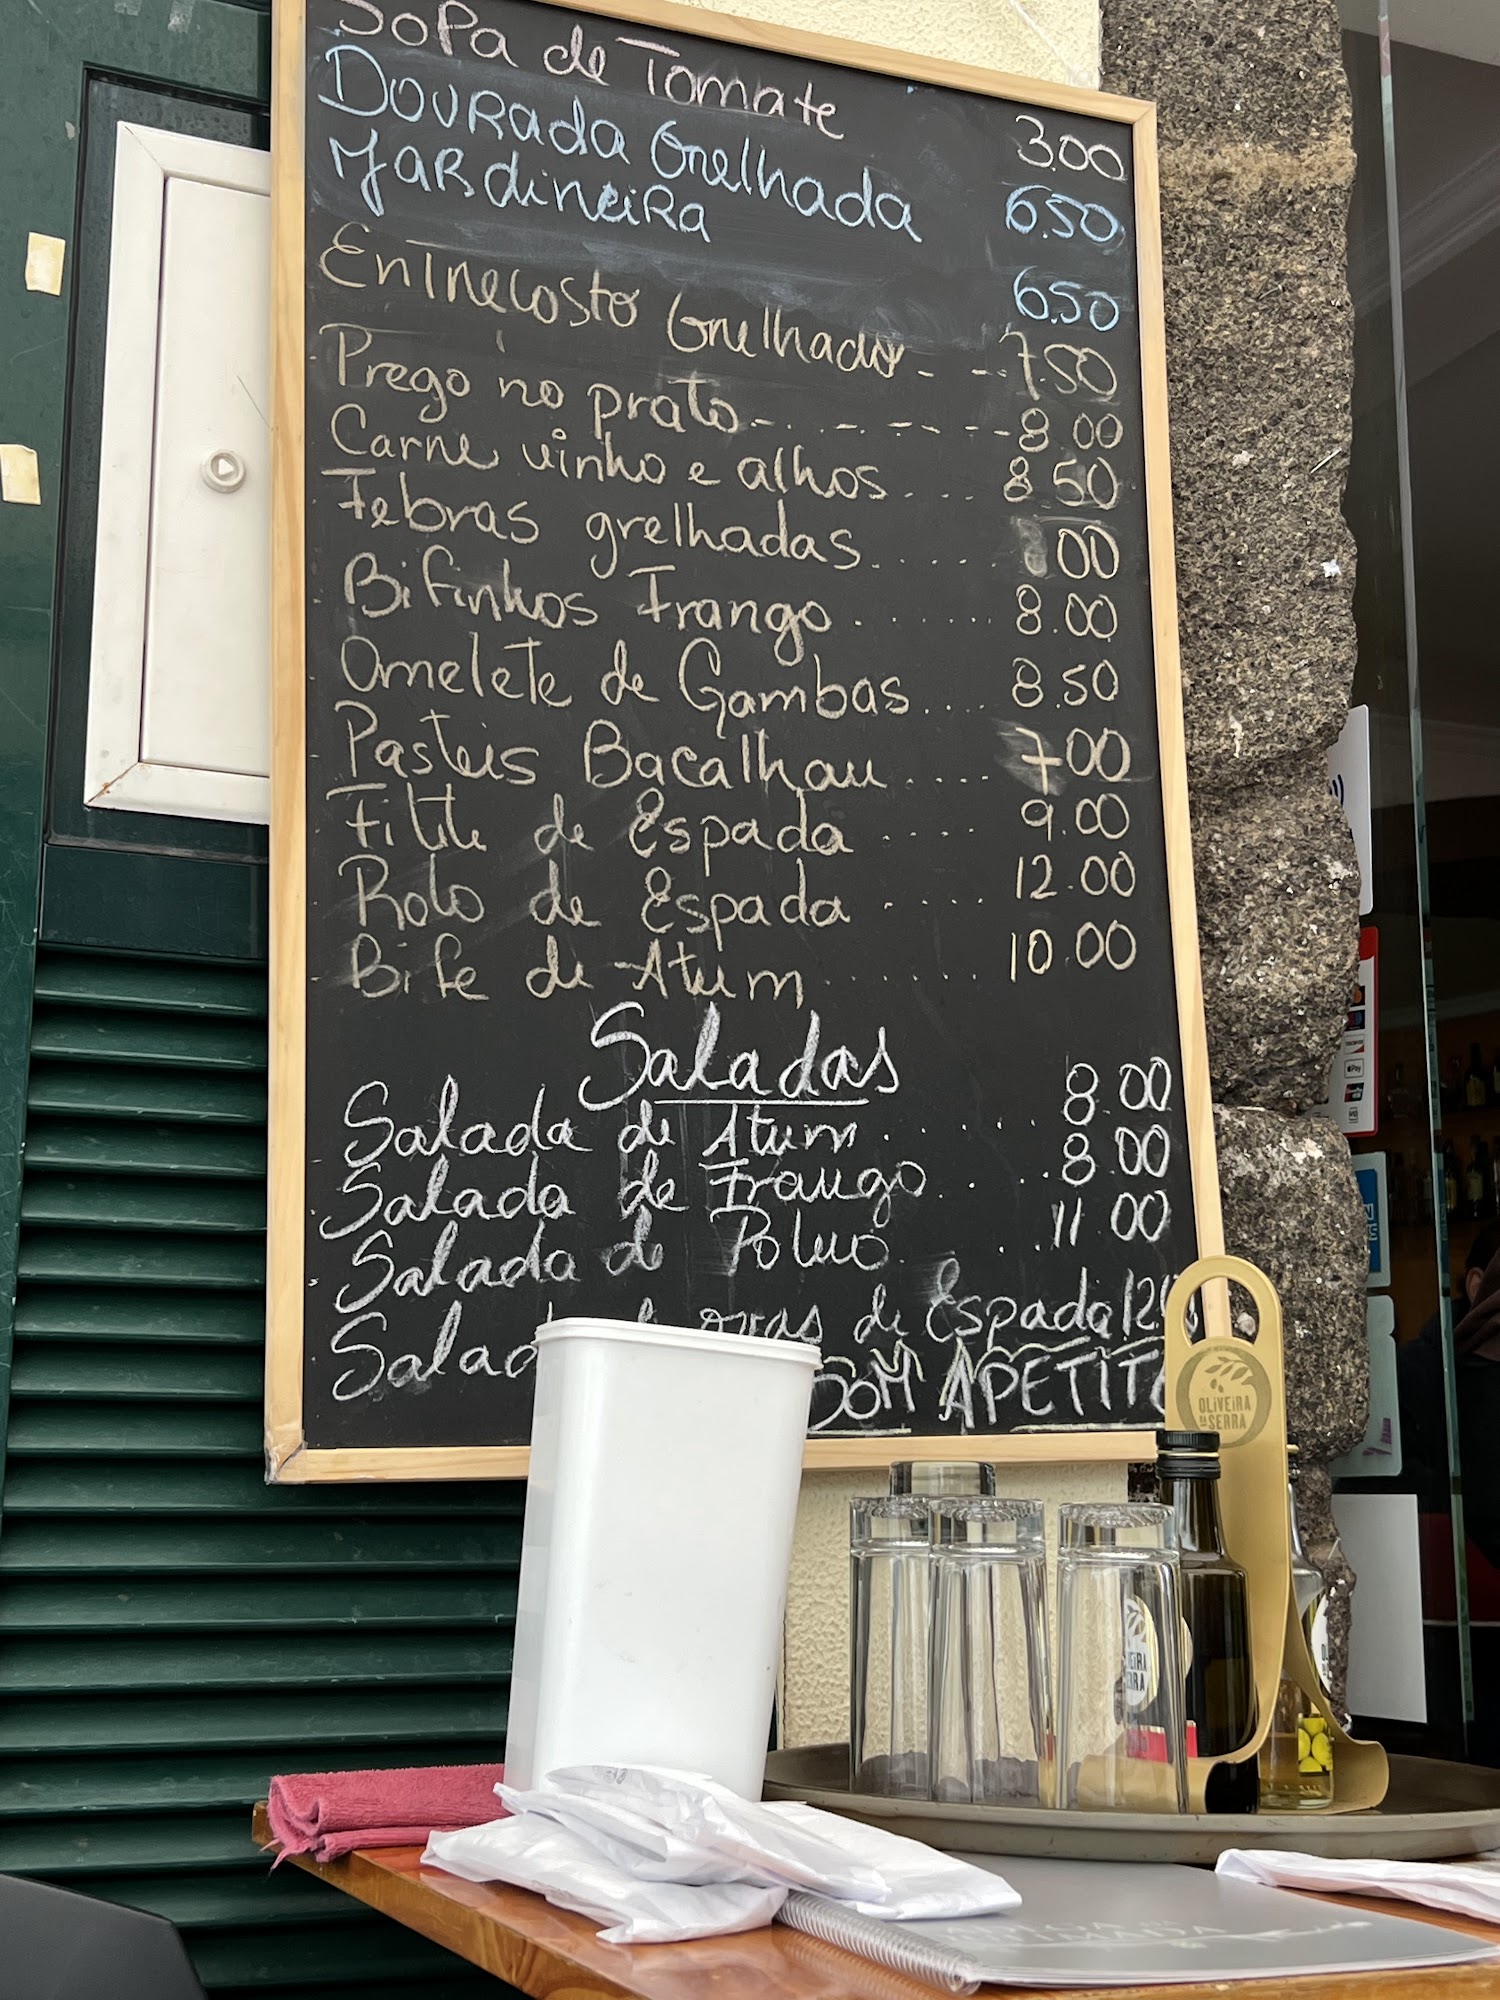 Sopa de Tomate 3.00
Dourada Grelhada 6.50
Jardineira 6.50
Entrecosto Grelhado - - - 7.50
Prego no prato - . - - - - - 8.00
Carne vinho e alhos .... 8.50
Febras grelhadas ...... 00
Bifinhos Frango ...... 8.00
Omelete de Gambas .... 8.50
Pasteis Bacalhau .... 7.00
Filete de Espada .... 9.00
Rolo de Espada .... 12.00
Bife de Atum ...... 10.00
Saladas
Salada de Atum ..... 8.00
Salada de Frango ... 8.00
Salada de Polvo ... 11.00
Salad ovas de Espada 12
BOM APETITE
OLIVEIRA
DA
SERRA